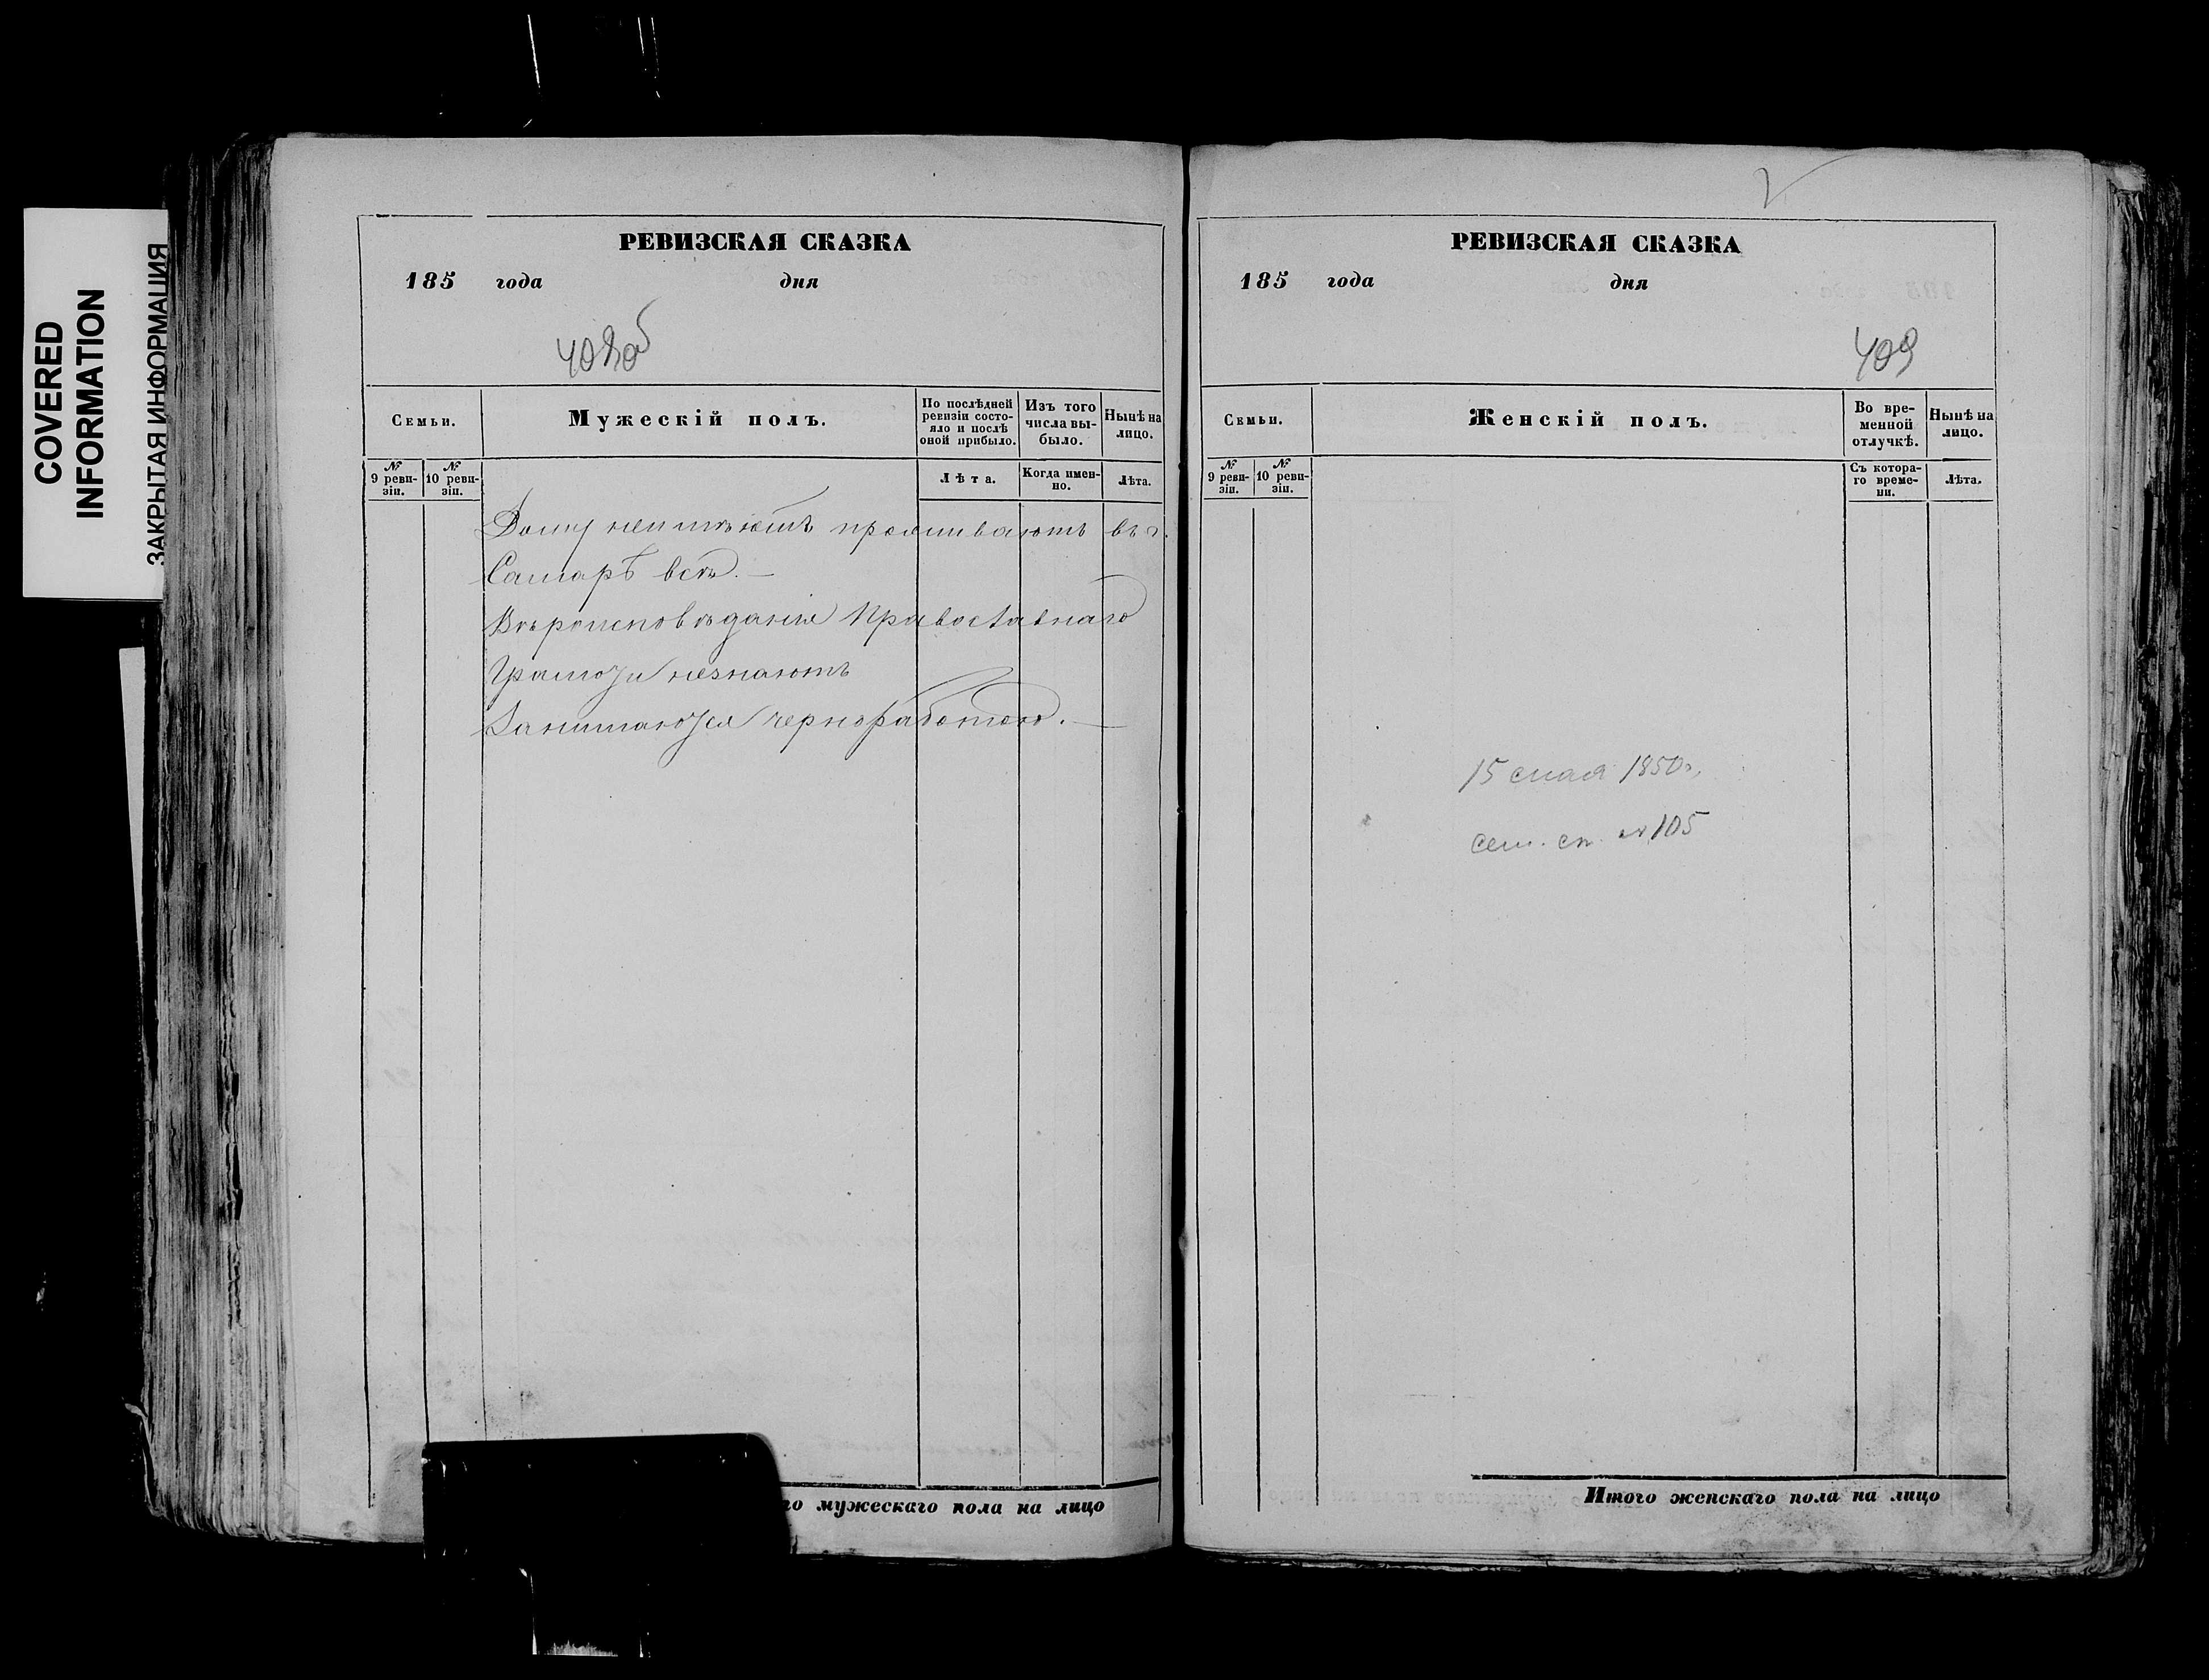 COVERED
INFORMATION
ЗАКРЫТАЯ ИНФОРМАЦИЯ
РЕВИЗСКАЯ СКАЗКА
185 года дня
408об
Семьи.
Мужескій полъ.
По послѣдней ревизіи состояло и послѣ оной прибыло.
Изъ того числа выбыло.
Нынѣ на лицо.
№ 9 ревизіи.
№ 10 ревизіи.
Лѣта.
Когда именно.
Лѣта.
Дому неимѣютъ проживаютъ въ г.
Самарѣ всѣ. —
Вѣроисповѣданія Православнаго
Грамоты незнаютъ
Занимаются черноработою. —
го мужескаго пола на лицо
РЕВИЗСКАЯ СКАЗКА
185 года дня
409
Семьи.
Женскій полъ.
Во временной отлучкѣ.
Нынѣ на лицо.
№ 9 ревизіи.
№ 10 ревизіи.
Съ котораго времени.
Лѣта.
15 мая 1850г.
сем. сп. № 105
Итого женскаго пола на лицо